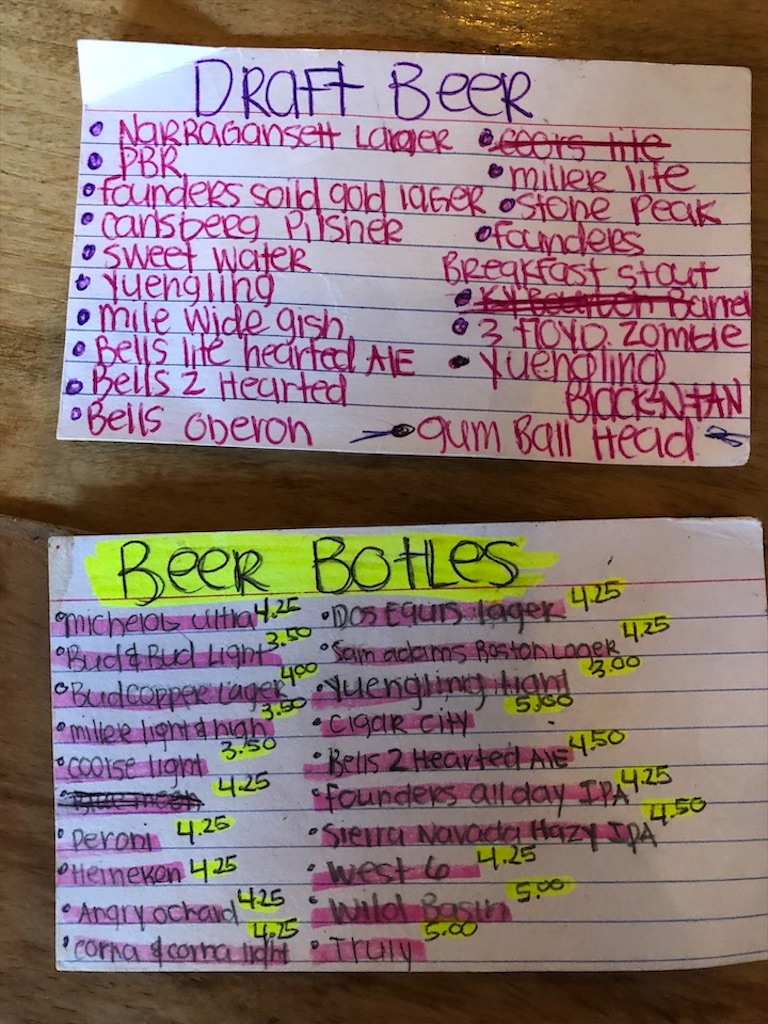 Draft Beer
Narragansett Larger
PBR
founders soild gold lager
carlsberg Pilsner
sweet water
Yuengling
mile wide gish
Bells lite hearted AlE
Bells 2 Hearted
Bells Oberon
coors lite
miller lite
Stone Peak
founders
Breakfast stout
KY Bourbon Barrel
3 flOYD. Zombie
Yuengling
Black N tAN
gum Ball Head
Beer Bottles
michelob ultra 4.25
Bud & Bud Light 3.50
Bud copper Lager 400
miller light & high 3.50
coorse light 3.50
Blue moon 4.25
Peroni 4.25
Heineken 4.25
Angry ochard 4.25
corna & corna light 4.25
Dos Equis lager 4.25
Sam adams Boston Lager 4.25
Yuengling light 3.00
Cigar City 5.00
Bells 2 Hearted AlE 4.50
founders all day IPA 4.25
Sierra Navada Hazy IPA 4.50
West 6 4.25
Wild Basin 5.00
Truly 5.00